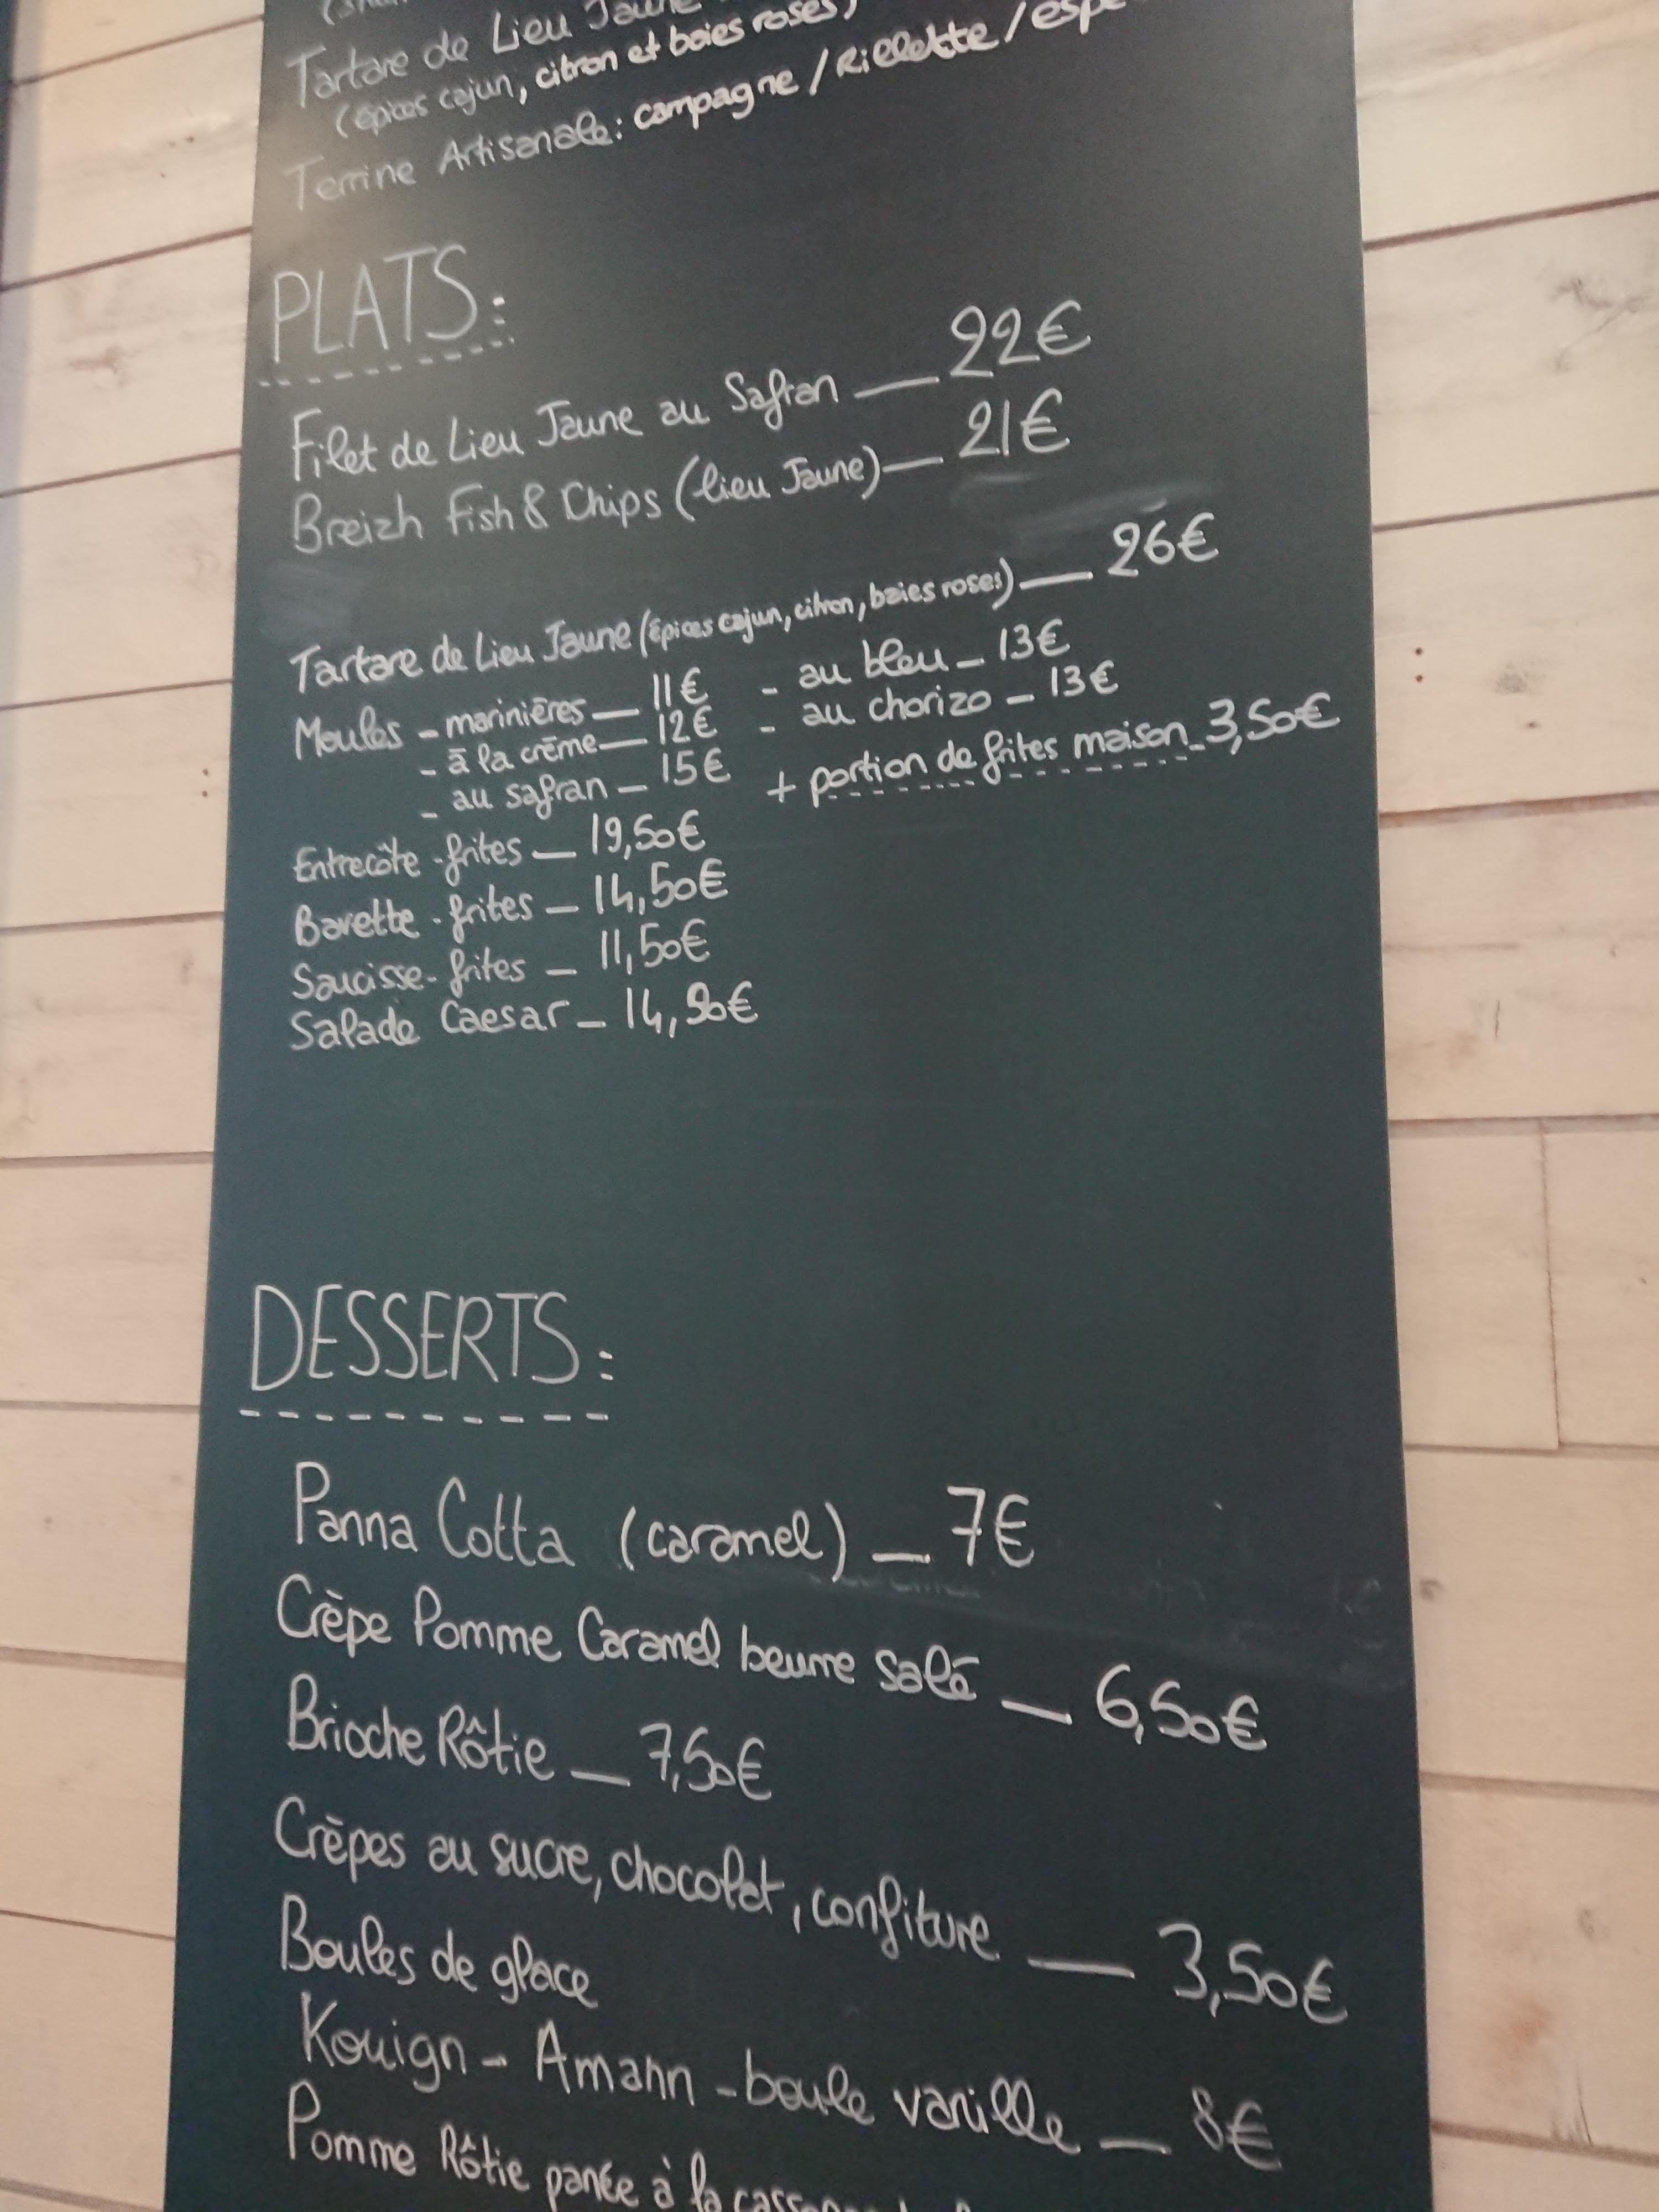 Tartare de Lieu Jaune
(épices cajun, citron et baies roses)
Terrine Artisanale: campagne / Rillette /
PLATS:
Filet de Lieu Jaune au Safran — 22€
Breizh Fish & Chips (lieu Jaune) — 21€
Tartare de Lieu Jaune (épices cajun, citron, baies roses) — 26€
Moules - marinières — 11€ - au bleu — 13€
- à la crème — 12€ - au chorizo — 13€
- au safran — 15€ + portion de frites maison - 3,50€
Entrecôte - frites — 19,50€
Bavette - frites — 14,50€
Saucisse - frites — 11,50€
Salade Caesar — 14,90€
DESSERTS:
Panna Cotta (caramel) — 7€
Crèpe Pomme Caramel beurre salé — 6,50€
Brioche Rôtie — 7,50€
Crèpes au sucre, chocolat, confiture — 3,50€
Boules de glace
Kouign - Amann - boule vanille — 8€
Pomme Rôtie panée à la